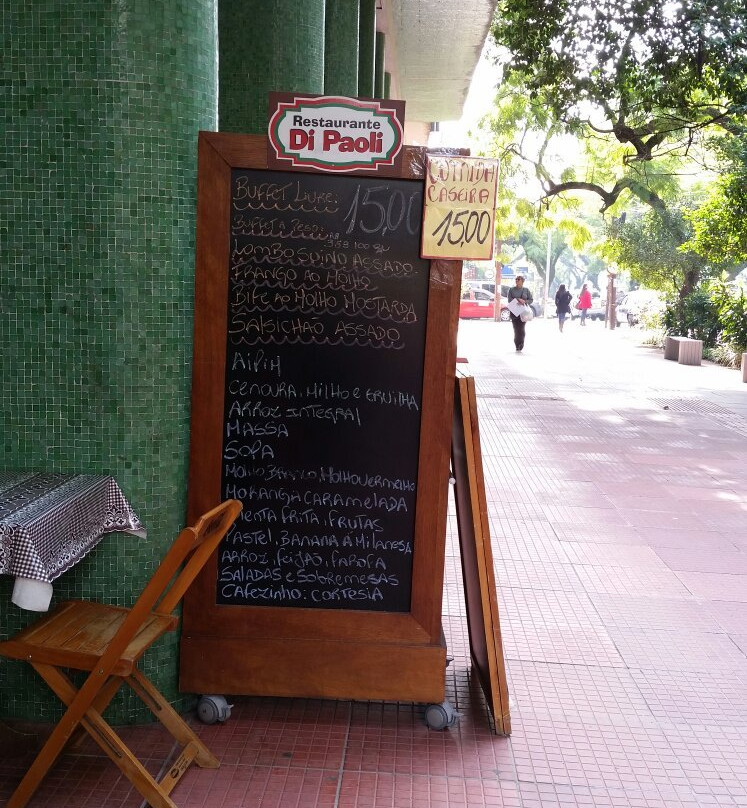 Restaurante
Di Paoli
COMIDA
CASEIRA
15,00
BUFFET LIVRE: 15,00
BUFFET A PESO: 3,58 100 gr
LOMBO SUINO ASSADO
FRANGO AO MOLHO
BIFE AO MOLHO MOSTARDA
SALSICHÃO ASSADO
AIPIM
CENOURA, MILHO E ERVILHA
ARROZ INTEGRAL
MASSA
SOPA
MOLHO BRANCO, MOLHO VERMELHO
MORANGA CARAMELADA
FRITA, FRUTAS
PASTEL, BANANA A MILANESA
ARROZ, FEIJÃO, FAROFA
SALADAS e SOBREMESAS
CAFEZINHO: CORTESIA